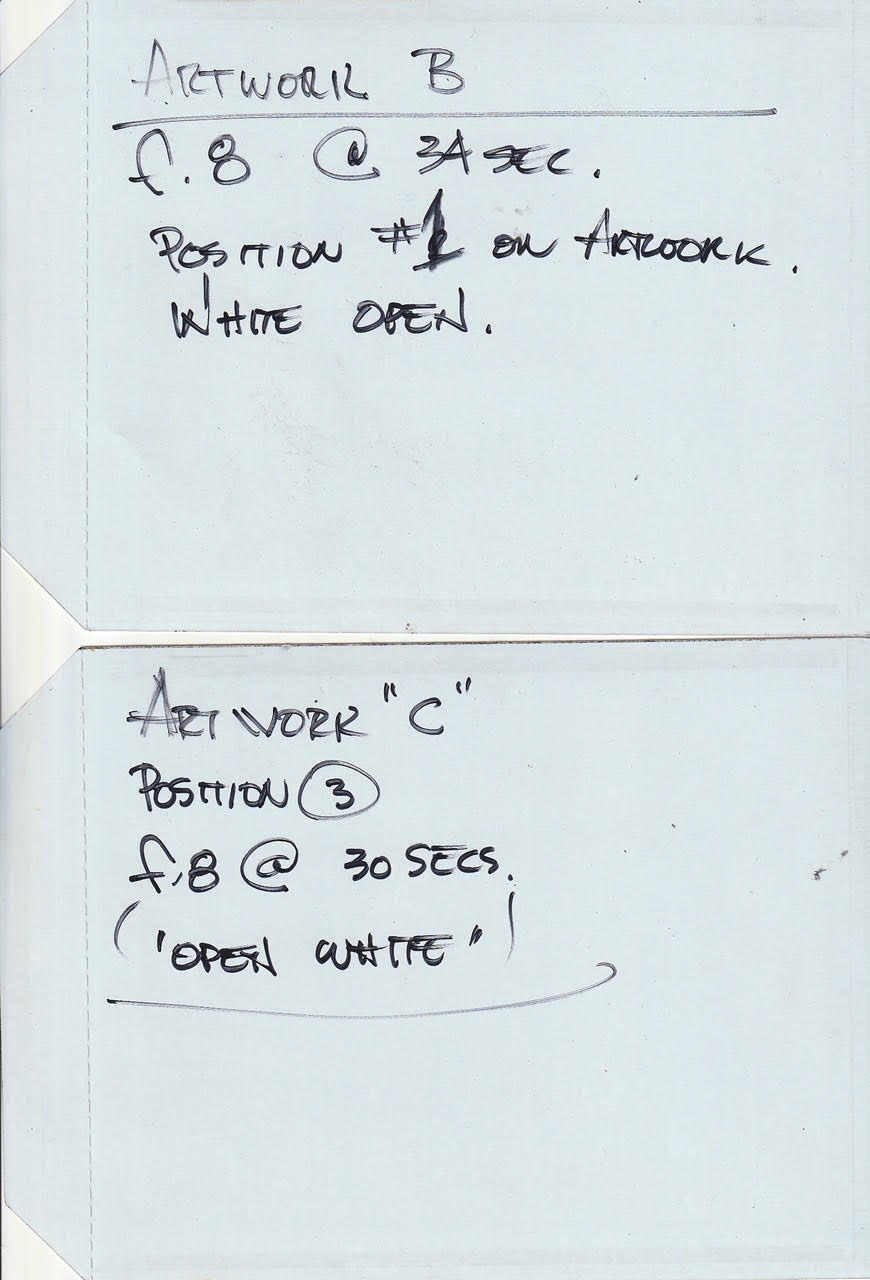 ARTWORK B
f.8 @ 34 SEC.
POSITION #1 ON ARTWORK.
WHITE OPEN.
ARTWORK "C"
POSITION 3
f.8 @ 30 SECS.
("OPEN WHITE")